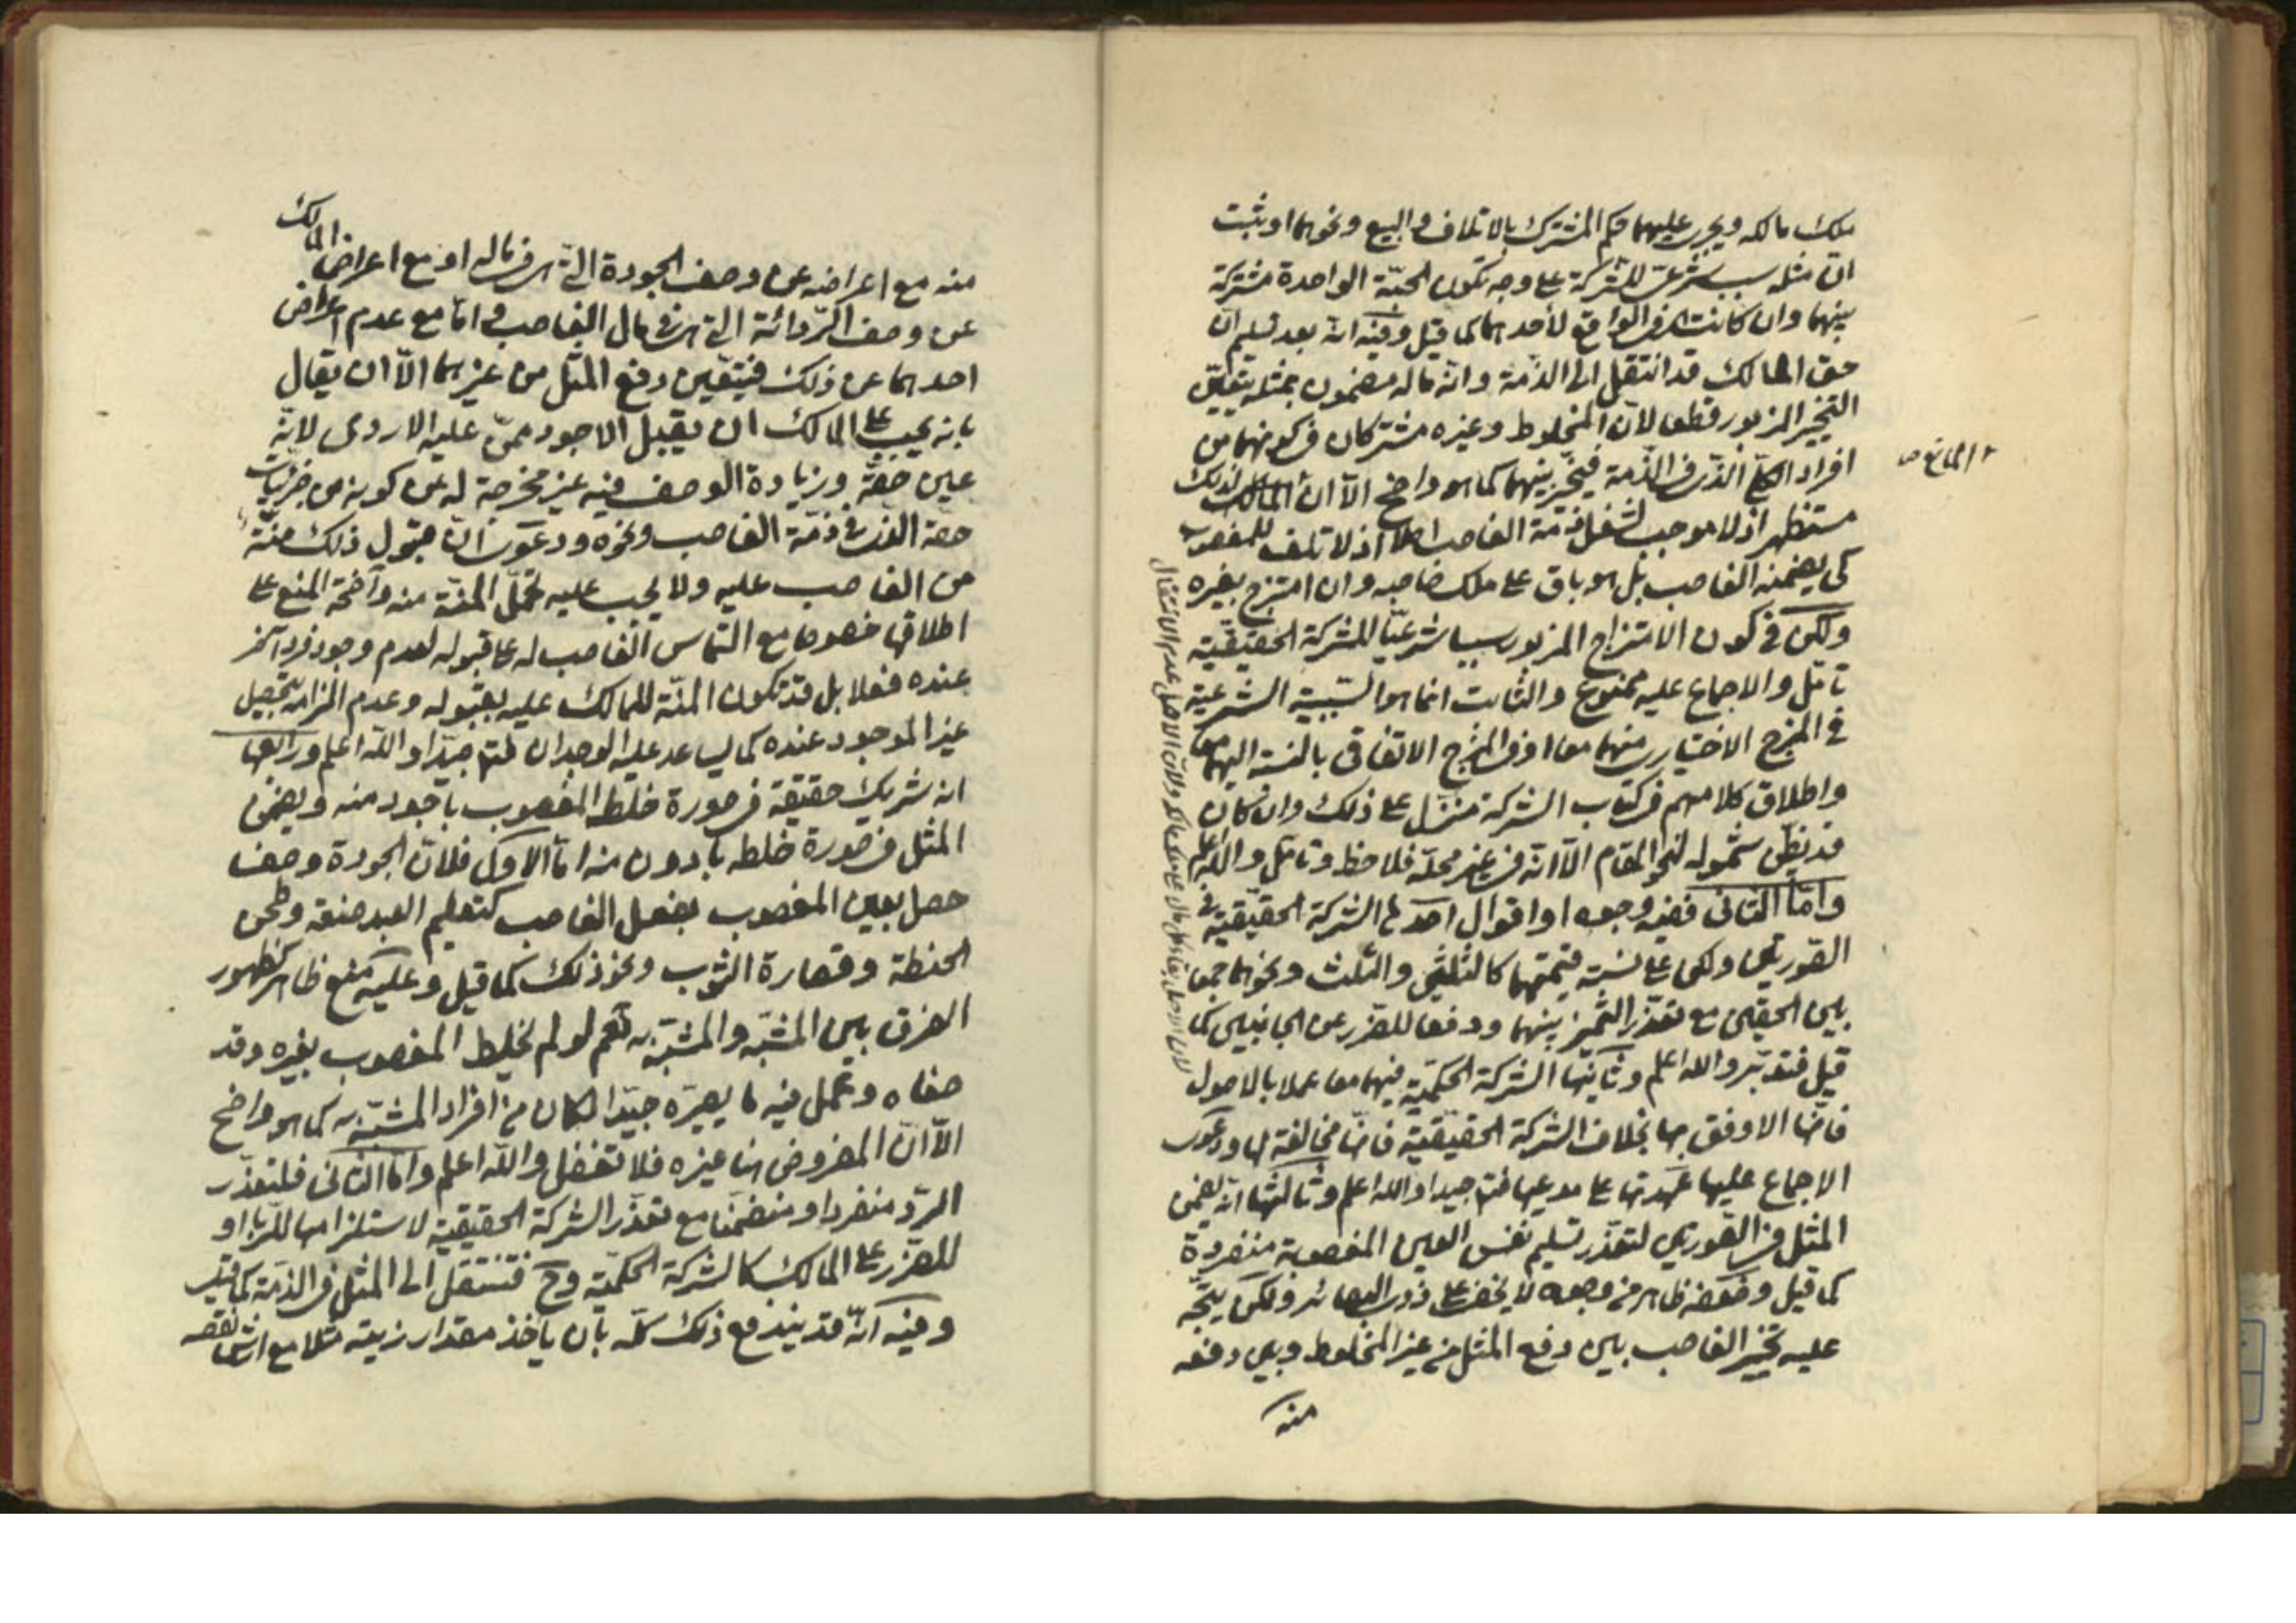 ملك مالكه ويجري عليهما حكم المشترك بالاتلاف والبيع ونحوهما او يثبت
ان مثله سبب شرعي للشركة على وجه تكون الحبّة الواحدة مشتركة
بينهما وان كانت في الواقع لأحدهما كما قيل وفيه انه بعد تسليم ان
حق المالك قد انتقل الى الذمة وانه ماله مضمون بمثله يتعيّن
التخيير المزبور قطعا لأن المخلوط وغيره مشتركان في كونهما من
افراد الكلي الذي في الذمة فيتخير بينهما كما هو واضح الّا ان المالك لذلك
مستظهر اذ لا موجب لشغل ذمة الغاصب اصلا اذ لا تلف للمغصوب
كي يضمنه الغاصب بل هو باق على ملك صاحبه وان امتزج بغيره
ولكن في كون الامتزاج المزبور سببا شرعيّا للشركة الحقيقيّة
تأمّل والاجماع عليه ممنوع والثابت انما هو السّببيّة الشرعية
في المزج الاختياري منهما معا او في المزج الاتفاقي بالنسبة اليهما معا
واطلاق كلامهم في كتاب الشركة منزل على ذلك وان كان
قد يظن شموله لنحو المقام الّا انه في غير محلّه فلاحظ وتأمّل والله اعلم
وامّا الثاني ففيه وجوه او اقوال احدها الشركة الحقيقيّة في
الصّورتين ولكن على نسبة قيمتهما كالثلثين والثلث ونحوهما جمعا
بين الحقين مع تعذّر التّميز بينهما ودفعا للضّرر عن الجانبين كما
قيل فتدبّر والله اعلم وثانيها الشركة الحكميّة فيهما معا عملا بالاصول
فانّها الاوفق بها بخلاف الشركة الحقيقيّة فانّها مخالفة لها ودعوى
الاجماع عليها عهدتها على مدعيها فتأمّل جيدا والله اعلم وثالثها انّه يضمن
المثل في الصّورتين لتعذّر تسليم نفس العين المغصوبة منفردة
كما قيل وضعفه ظاهر من وجوه لا يخفى على ذوي البصائر ولكن يتّجه
عليه تخيير الغاصب بين دفع المثل من غير المخلوط وبين دفعه
منه
منه مع اعراضه عن وصف الجودة الّتي في ماله او مع اعراض المالك
عن وصف الرّدائة التي في مال الغاصب وامّا مع عدم اعراض
احدهما عن ذلك فيتعين دفع المثل من غيرهما الّا ان يقال
بانه يجب على المالك ان يقبل الاجود ممّن عليه الاردى لانّه
عين حقّه وزيادة الوصف فيه غير مخرجة له عن كونه من جزئيات
حقه الذي في ذمّة الغاصب ونحوه ودعوى انّ قبول ذلك منّة
من الغاصب عليه ولا يجب عليه تحمّل المنّة منه واضحة المنع على
اطلاقها خصوصا مع التماس الغاصب له على قبوله لعدم وجود فرد آخر
عنده فعلا بل قد تكون المنّة للمالك عليه بقبوله وعدم الزامه بتحصيل
غير الموجود عنده كما يساعد عليه الوجدان فتأمّل جيّدا والله اعلم ورابعها
انه شريك حقيقة في صورة خلط المغصوب باجود منه ويضمن
المثل في صورة خلطه بأدون منه امّا الاول فلانّ الجودة وصف
حصل بعين المغصوب بفعل الغاصب كتعليم العبد صنعة وطحن
الحنطة وقصارة الثوب ونحو ذلك كما قيل وعليه منع ظاهر لظهور
الفرق بين المشبّه والمشبّه به نعم لو لم يخلط المغصوب بغيره وقد
صفاه وعمل فيه ما يصيّره جيّدا لكان من افراد المشبّه به كما هو واضح
الّا انّ المفروض هنا غيره فلا تغفل والله اعلم وامّا الثاني فلتعذّر
الردّ منفردا ومنضمّا مع تعذّر الشركة الحقيقيّة لاستلزامها للرّبا او
للضّرر على المالك كالشركة الحكميّة وح فتنتقل الى المثل في الذمّة كما قيل
وفيه انّه قد يندفع ذلك كلّه بأن يأخذ مقدار زيته مثلا مع ارش نقصه